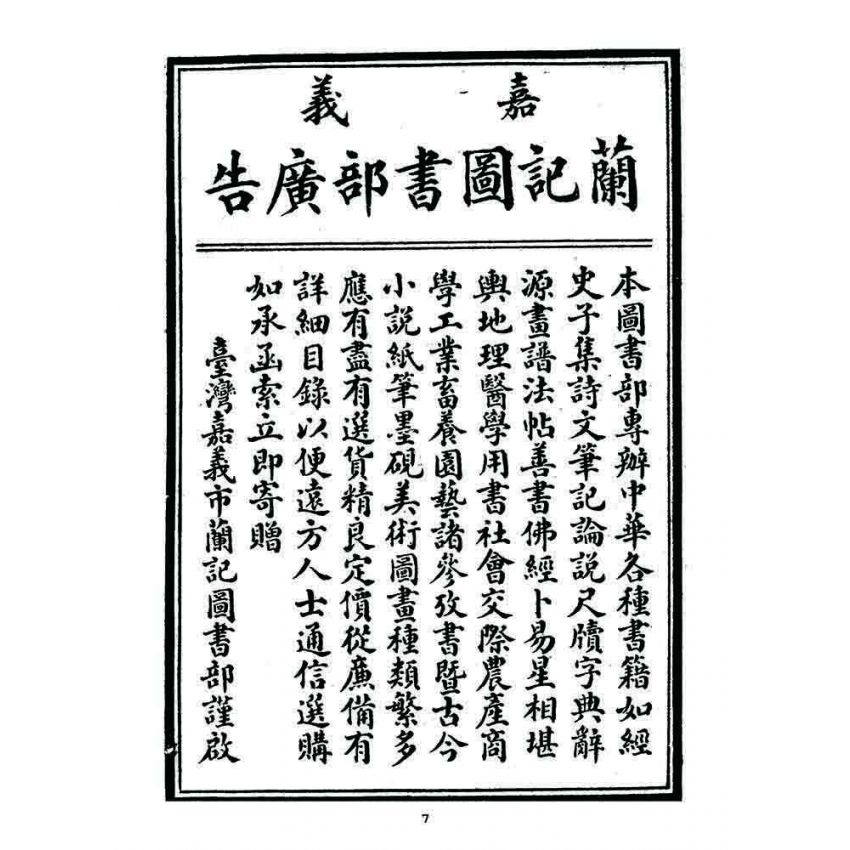 嘉義
蘭記圖書部廣告
本圖書部專辦中華各種書籍如經
史子集詩文筆記論説尺牘字典辭
源畫譜法帖善書佛經卜易星相堪
輿地理醫學用書社會交際農產商
學工業畜養園藝諸參攷書暨古今
小説紙筆墨硯美術圖畫種類繁多
應有盡有選貨精良定價從廉備有
詳細目錄以便遠方人士通信選購
如承函索立即寄贈
臺灣嘉義市蘭記圖書部謹啟
7